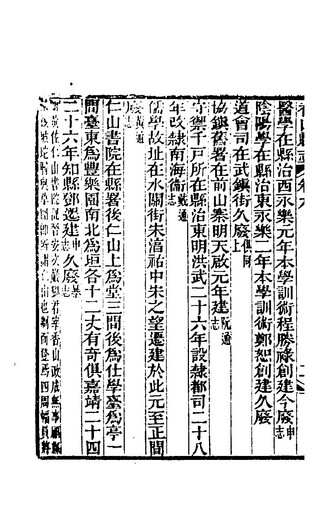 醫學在縣治西永樂元年本學訓術程勝祿創建今廢申志
陰陽學在縣治東永樂二年本學訓術鄭恕創建久廢
道會司在武鎮街久廢俱同
協鎮署在前山寨明天啟元年建阮通
守禦千戶所在縣治東明洪武二十六年設隸都司二十八
年改隸南海衞戴通志
儒學故址在水關街宋湻祐中宋之望遷建於此元至正間
黃通志
仁山書院在縣署後仁山上爲堂三間後爲仕學臺爲亭一
間臺東爲豐樂圃南北爲垣各十二丈有奇俱嘉靖二十四
二十六年知縣鄧遷建申志久廢暴志